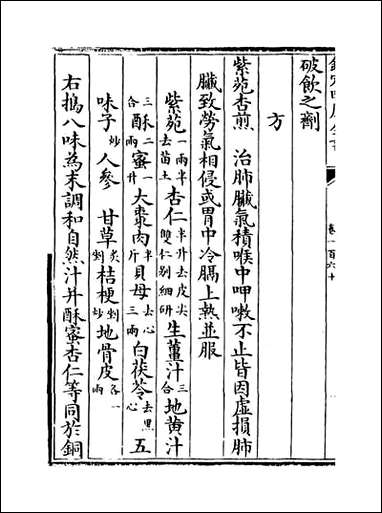 卷一百六十
破飲之劑
方
紫菀杏煎 治肺臟氣積喉中呷嗽不止皆因虛損肺
臟致勞氣相侵或胃中冷膈上熱並服
紫菀一兩半去苗土杏仁半升去皮尖雙仁别細研生薑汁三合地黄汁
三合酥二兩蜜一升大棗肉半斤貝母去心三兩白茯苓去黑心五
味子炒人參 甘草炙剉桔梗剉炒地骨皮各一兩
右搗八味為末調和自然汁并酥蜜杏仁等同於銅